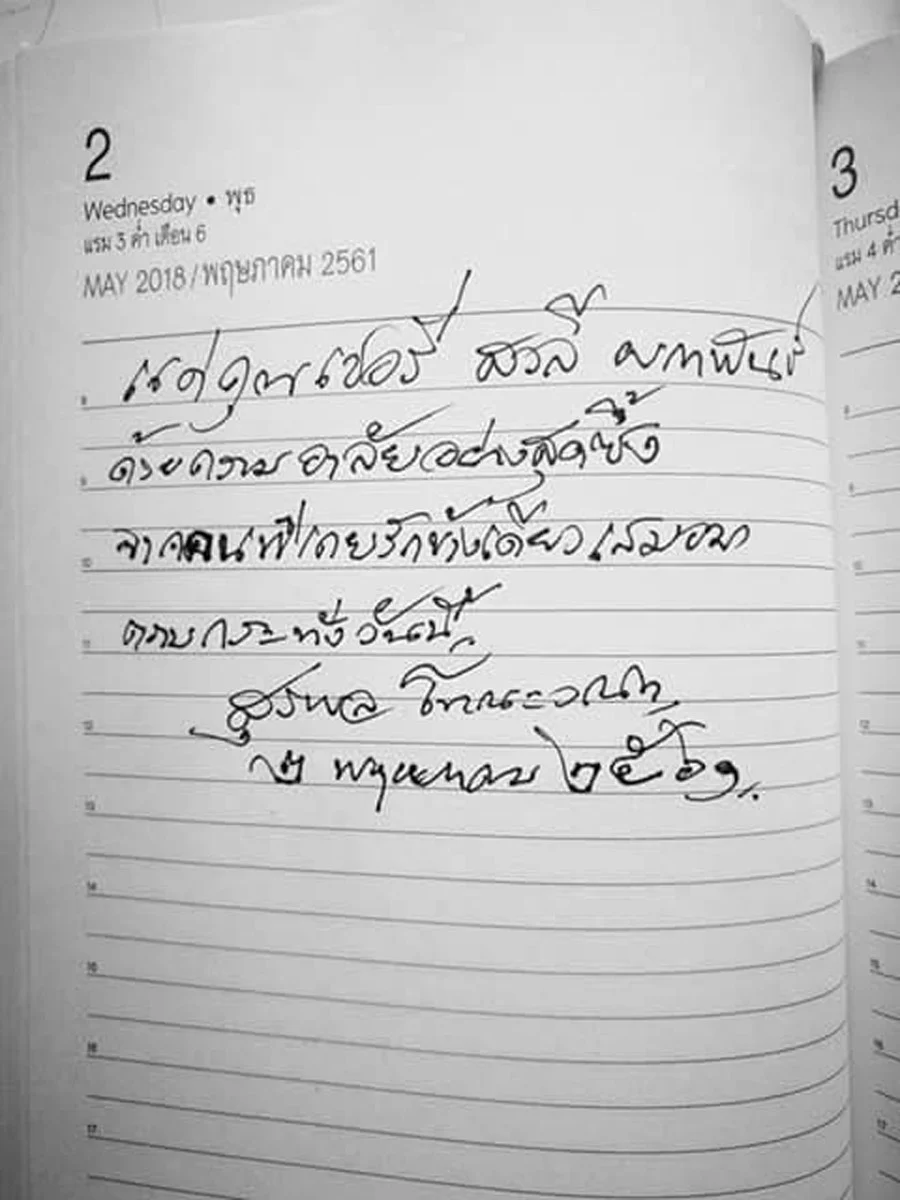 2
Wednesday • พุธ
แรม 3 ค่ำ เดือน 6
MAY 2018 / พฤษภาคม 2561
แด่คุณเชอรี่ สวลี ผกาพันธุ์
ด้วยความอาลัยอย่างสุดซึ้ง
จากคนที่เคยรักข้างเดียวเสมอมา
ตราบกระทั่งวันนี้
สุรพล โทณะวณิก
๒ พฤษภาคม ๒๕๖๑
8
9
10
11
12
13
14
15
16
17
3
Thursd
แรม 4 ค่ำ
MAY 2